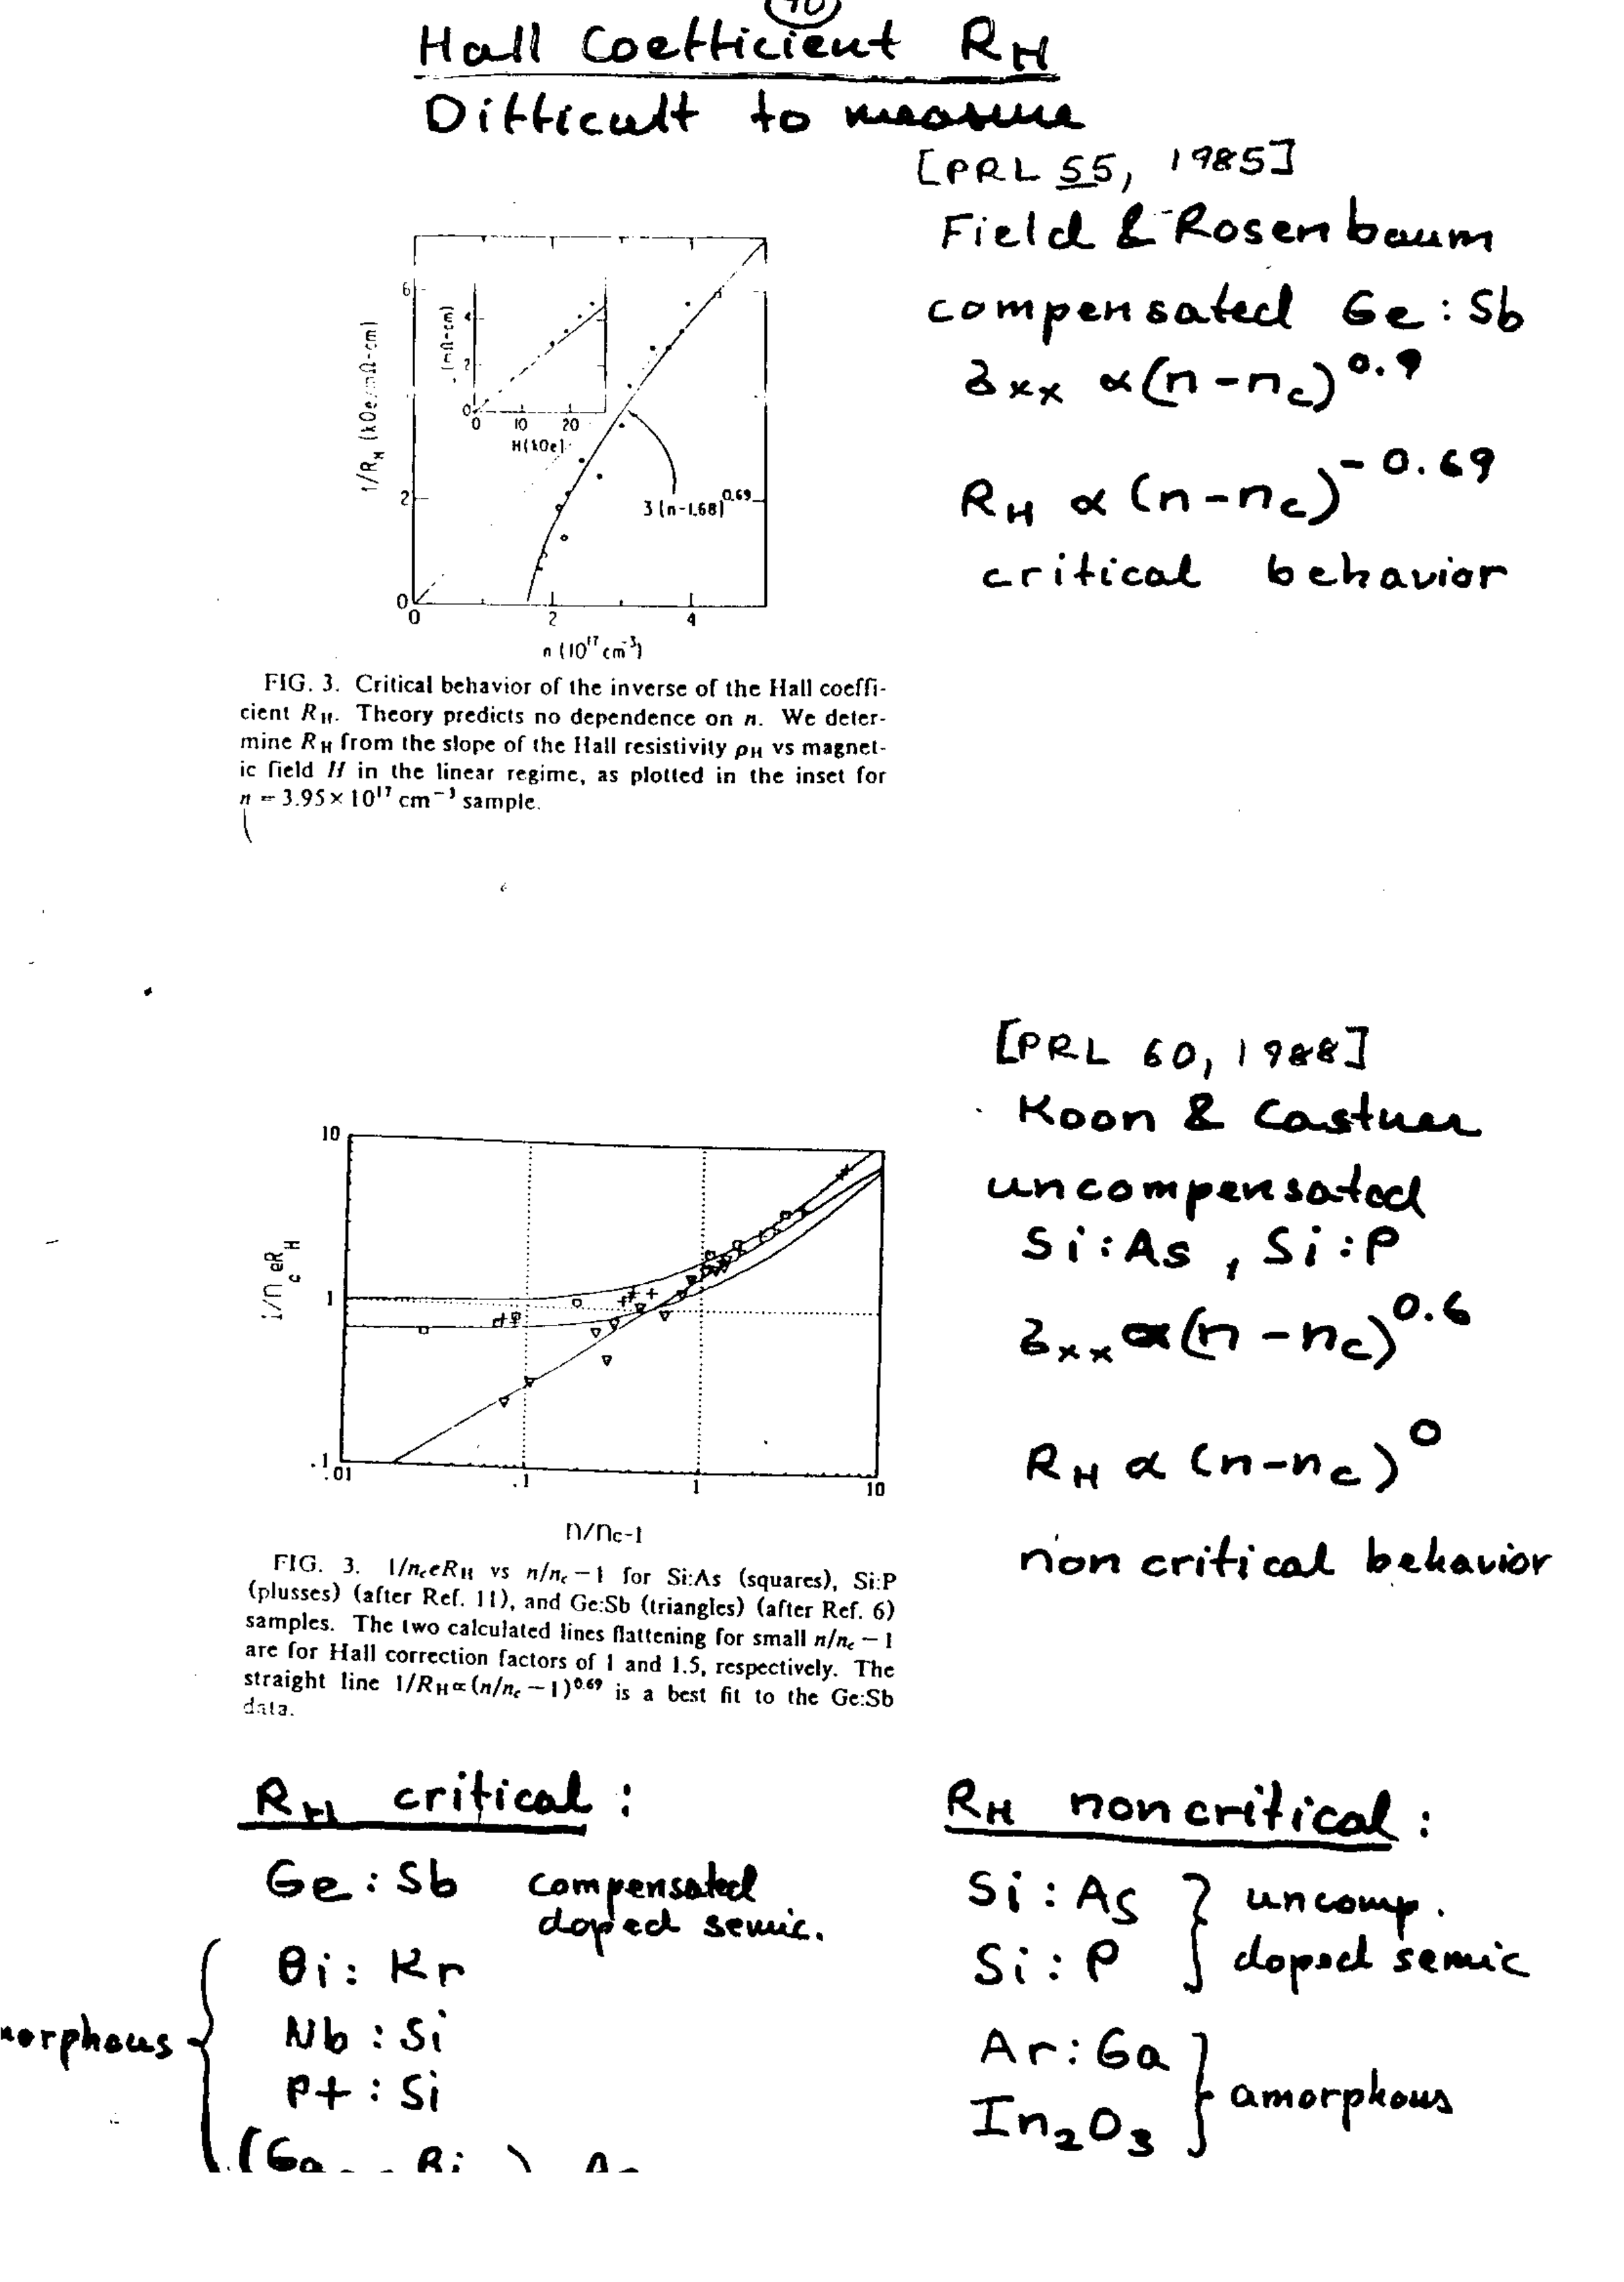 40
Hall Coefficient R_H
Difficult to measure
[PRL 55, 1985]
Field & Rosenbaum
compensated Ge : Sb
σxx ∝ (n-nc)^0.9
R_H ∝ (n-nc)^-0.69
critical behavior
6
2
0
0 2 4
1/R_H (kOe/mΩ-cm)
n (10^17 cm^-3)
4
2
0
0 10 20
H(kOe)
(mΩ-cm)
3(n-1.68)^0.69
FIG. 3. Critical behavior of the inverse of the Hall coeffi-
cient R_H. Theory predicts no dependence on n. We deter-
mine R_H from the slope of the Hall resistivity ρ_H vs magnet-
ic field H in the linear regime, as plotted in the inset for
n = 3.95×10^17 cm^-3 sample.
[PRL 60, 1988]
Koon & Castner
uncompensated
Si:As, Si:P
σxx ∝ (n-nc)^0.6
R_H ∝ (n-nc)^0
non critical behavior
10
1
.1
.01 .1 1 10
1/n_c eR_H
n/nc-1
FIG. 3. 1/n_c eR_H vs n/n_c − 1 for Si:As (squares), Si:P
(plusses) (after Ref. 11), and Ge:Sb (triangles) (after Ref. 6)
samples. The two calculated lines flattening for small n/n_c − 1
are for Hall correction factors of 1 and 1.5, respectively. The
straight line 1/R_H ∝ (n/n_c − 1)^0.69 is a best fit to the Ge:Sb
data.
R_H critical :
Ge : Sb compensated
doped semic.
Bi : Kr
Nb : Si
Pt : Si
morphous
R_H noncritical :
Si : As } uncomp.
Si : P } doped semic
Ar : Ga
In2O3 } amorphous